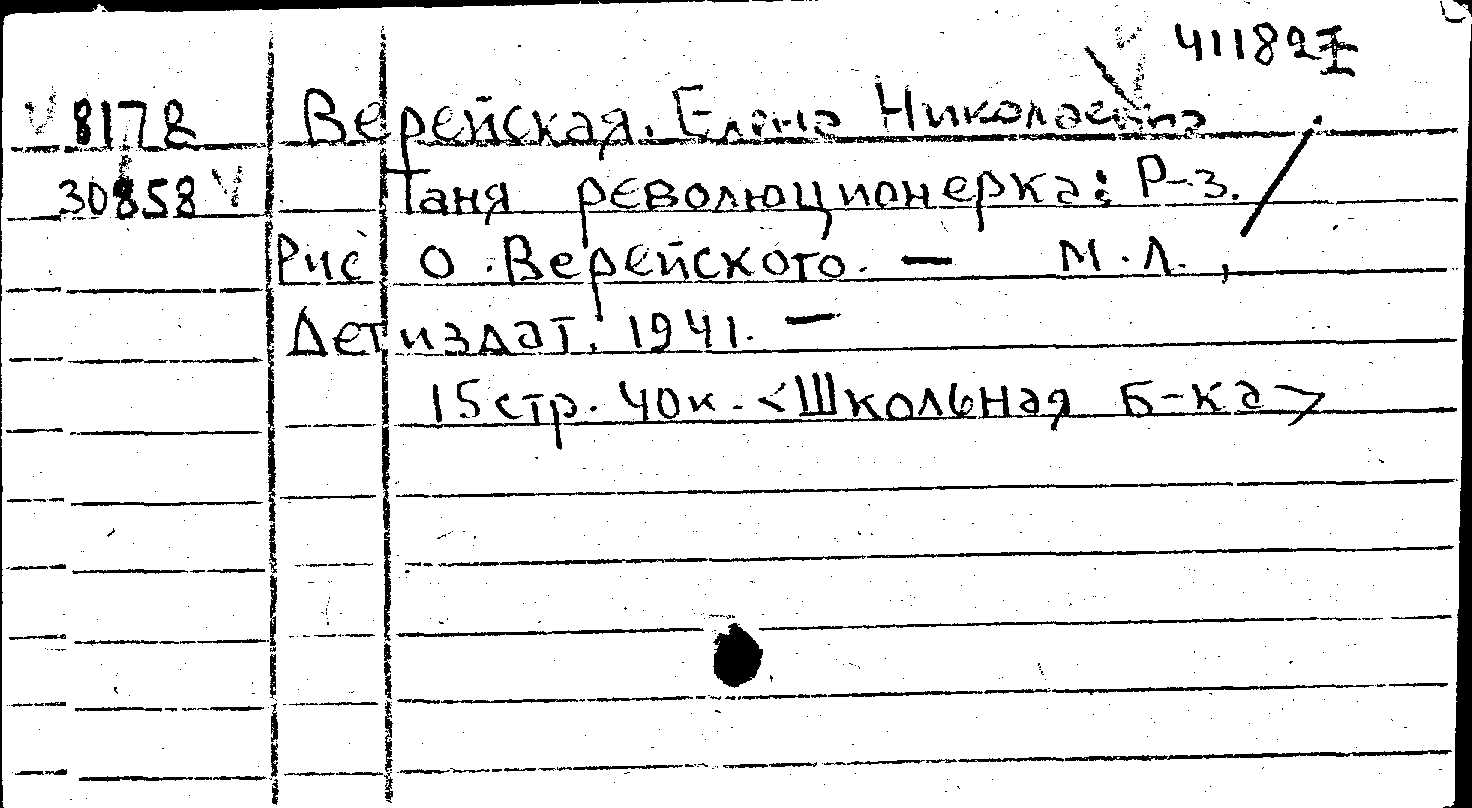 41182I
8178 Верейская. Елена Николаевна
30858 Таня революционерка: Р-з.
Рис О. Верейского. — М.Л.,
Детиздат. 1941. —
15стр. 40к. <Школьная б-ка>